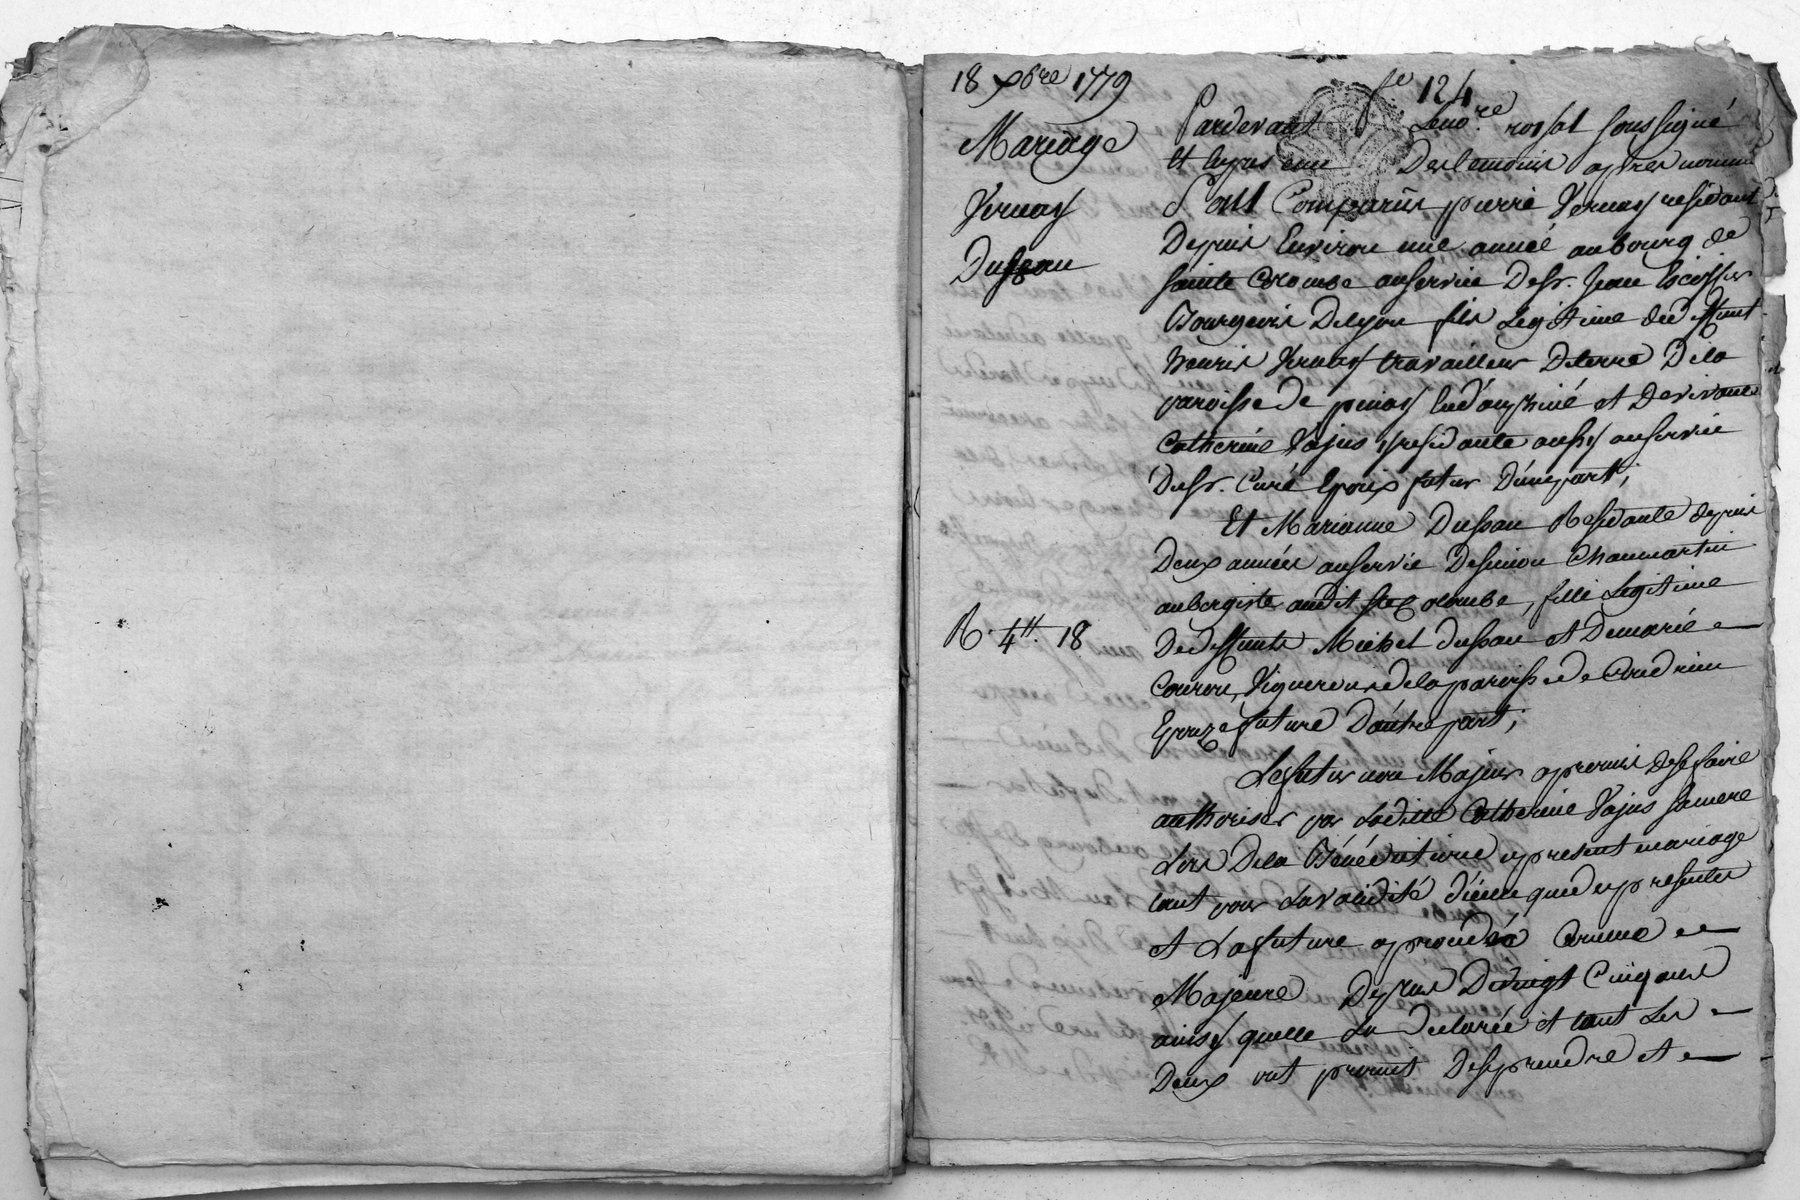 18 xbre 1779
fe 124
Mariage
Vernay
Dussau
R. 4tt. 18
Pardevant Le no.re royal soussigné
Et En presence Des temoins apres nommés
Sont Comparûs pierre Vernay residant
Depuis Environ une année au bourg de
sainte Colombe au service De sr. Jean
Bourgeois De lyon fils Legitime de deffunt
henris Vernay travailleur De terre De la
paroisse de en dauphiné et De vivante
Catherine Pajus residante aussy au service
Du sr. Curé Epoux futur D'une part;
Et Marianne Dussau Residante depuis
Deux années au service De simon Chaumartin
aubergiste audit ste Colombe, fille Legitime
De deffunts Michel dussau et De marie
Couron, Vigneron de la paroisse de Condrieu
Epouze future D'autre part;
Le futur non Majeur a promis De se faire
authoriser par Laditte Catherine Pajus sa mere
Lors De la Bénédiction du present mariage
tant pour La validité d'icelui que du presentes
et La future comme
Majeure De plus De vingt Cinq ans
ainsy quelle La declarée et tout Les
Deux ont promit De se prendre et